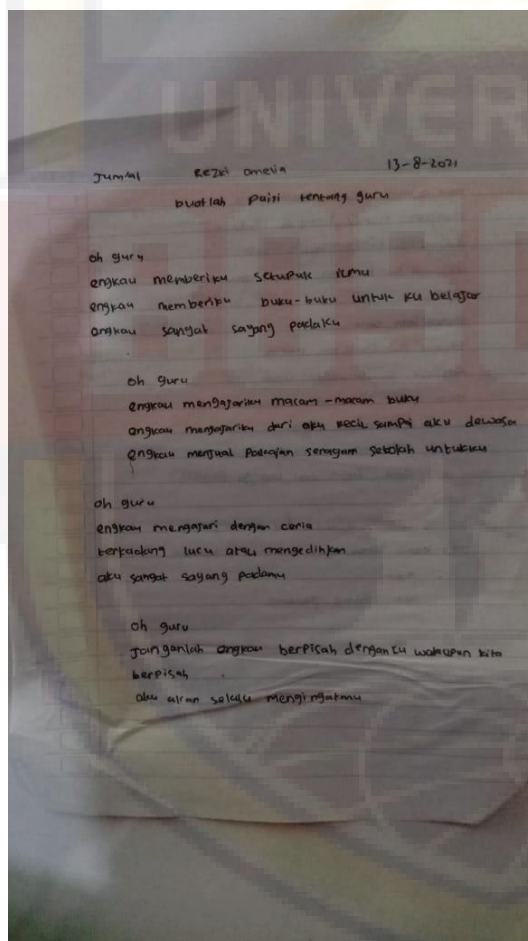 UNIVER
BOSO
Jum'at Rezki Amelia 13-8-2021
buatlah Puisi tentang guru
oh guru
engkau memberiku setupuk ilmu
engkau memberiku buku-buku untuk ku belajar
engkau sangat sayang padaku
oh guru
engkau mengajariku macam-macam buku
engkau mengajariku dari aku kecil sampai aku dewasa
engkau menjual Pakaian seragam sekolah untukku
oh guru
engkau mengajari dengan ceria
terkadang lucu atau mengedihkan
aku sangat sayang padamu
oh guru
Janganlah engkau berpisah denganku walaupun kita
berpisah
aku akan selalu mengingatmu